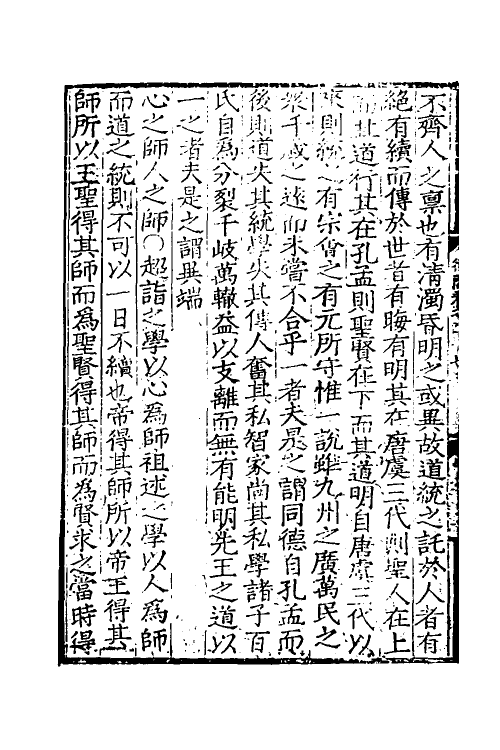 不齊人之禀也有清濁昏明之或異故道統之託於人者有
絕有續而傳於世者有晦有明其在唐虞三代則聖人在上
而其道行其在孔孟則聖賢在下而其道明自唐虞三代以
來則統之有宗會之有元所守惟一說雖九州之廣萬民之
衆千歲之遠而未嘗不合乎一者夫是之謂同德自孔孟而
後則道失其統學失其傳人奮其私智家尚其私學諸子百
氏自為分裂千岐萬轍益以支離而無有能明先王之道以
一之者夫是之謂異端
心之師人之師〇超詣之學以心為師祖述之學以人為師
而道之統則不可以一日不續也帝得其師所以帝王得其
師所以王聖得其師而為聖賢得其師而為賢求之當時得